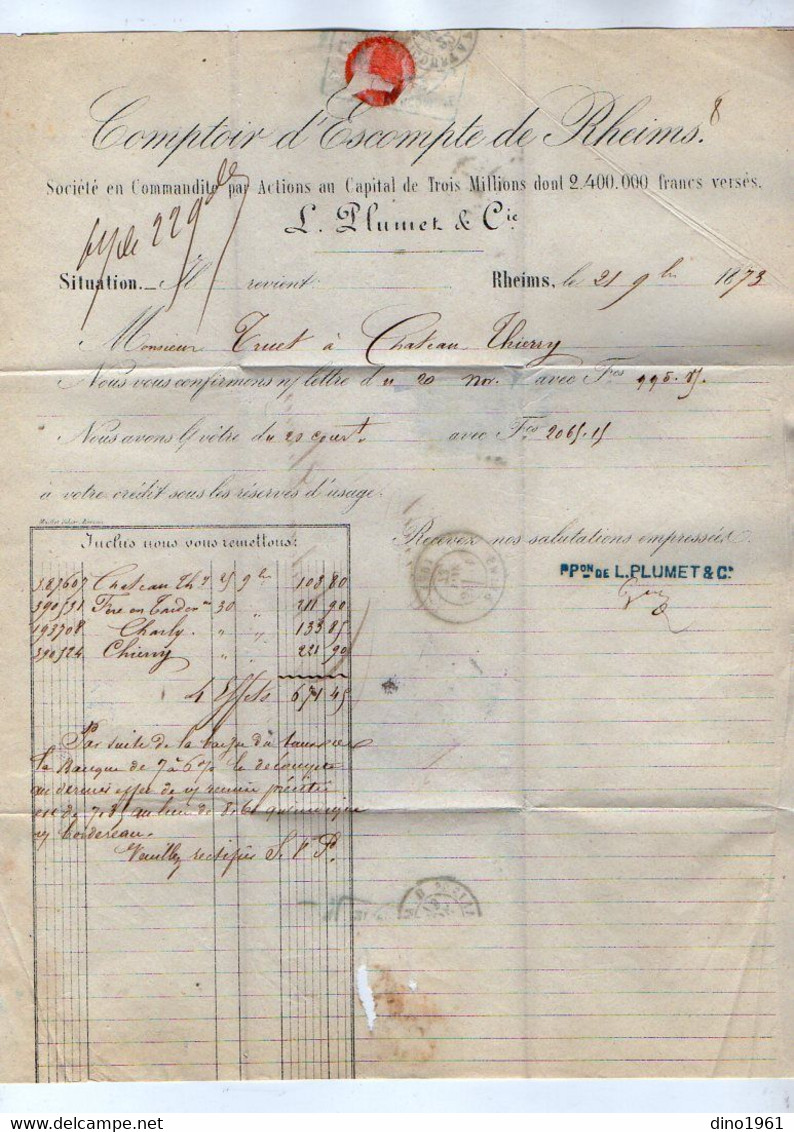 Comptoir d'Escompte de Rheims.
8
Société en Commandite par Actions au Capital de Trois Millions dont 2.400.000 francs versés.
L. Plumet & Cie
229
Situation. M revient Rheims, le 21 9bre 1873
Monsieur Truet à Chateau Thierry
Nous vous confirmons n/ lettre du 20 nov. avec Fcs 995.85.
Nous avons la vôtre du 20 court avec Fcs 2065.15
à votre crédit sous les réserves d'usage.
Inclus nous vous remettons: Recevez nos salutations empressées.
PPON DE L. PLUMET & Cie
387607 Chateau Thy 25 9bre 108 80
390531 Fère en Tardenois 30 " 211 90
193708 Charly " " 133 85
390524 Chierry " " 221 90
4 Effets 671 45
Par suite de la baisse du taux de
la Banque de 7 à 6 % le décompte
au dernier effet de n/ remise précitée
est de 7,85 au lieu de 8.61
n/ bordereau.
Veuillez rectifier S. V. P.
dino1961